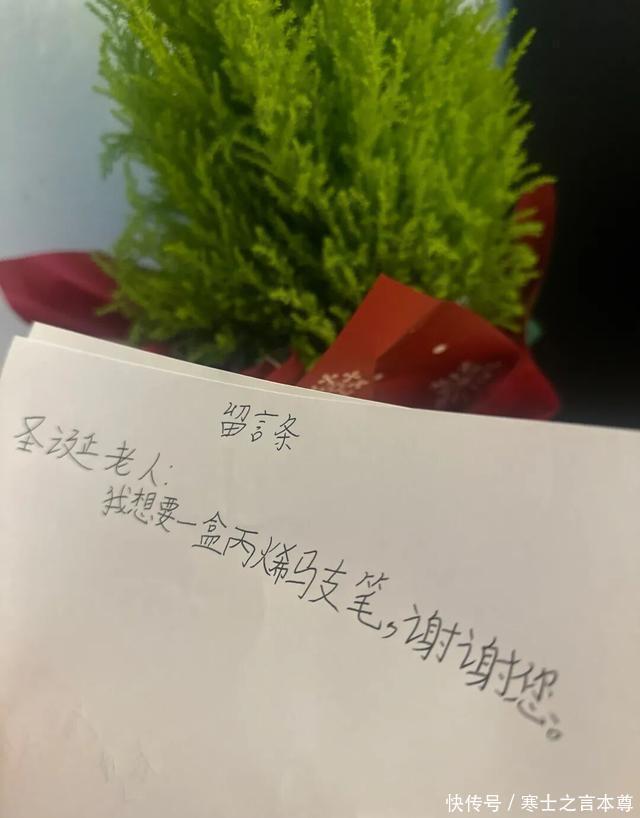 留言条
圣诞老人:
我想要一盒丙烯马支笔,谢谢您。
快传号/寒士之言本尊